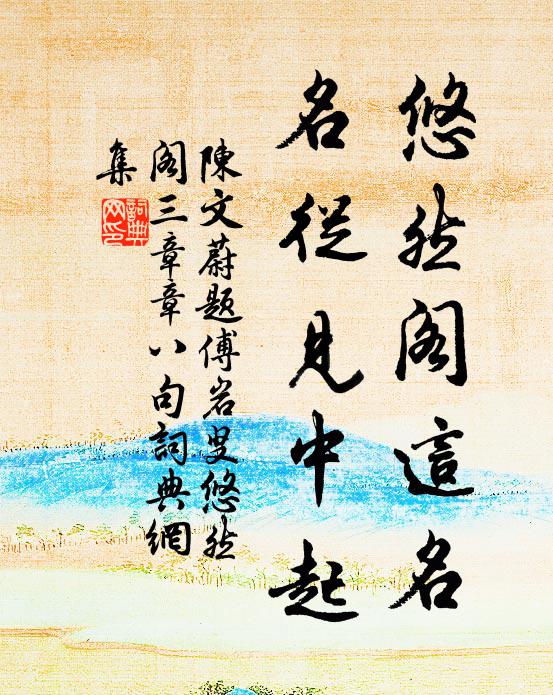 悠然阁這名
名從見中起
陳文蔚題傅岩叟悠然
阁三章章八句詞典網
集
詞典
网印